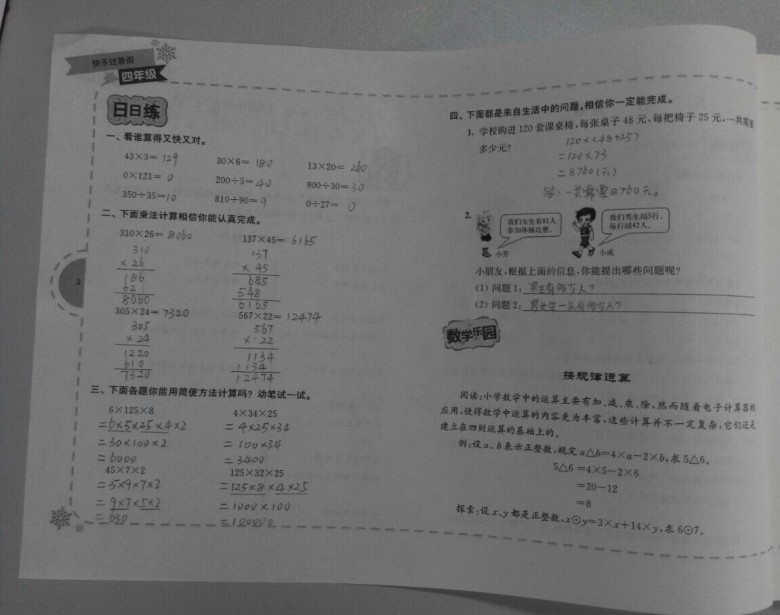 快乐过暑假
四年级
日日练
一、看谁算得又快又对。
43×3= 129
30×6= 180
13×20= 260
0×121= 0
200÷5= 40
900÷30= 30
350÷35= 10
810÷90= 9
0÷27= 0
二、下面乘法计算相信你能认真完成。
310×26= 8060
137×45= 6165
310
137
× 26
× 45
186
685
62
548
8060
6165
305×24= 7320
567×22= 12474
305
567
× 24
× 22
1220
1134
610
1134
7320
12474
三、下面各题你能用简便方法计算吗?动笔试一试。
6×125×8
4×34×25
=6×5×25×4×2
=4×25×34
=30×100×2
=100×34
=6000
=3400
45×7×2
125×32×25
=5×9×7×2
=125×8×4×25
=9×7×5×2
=1000×100
=630
=100000
2
四、下面都是来自生活中的问题,相信你一定能完成。
1. 学校购进 120 套课桌椅,每张桌子 48 元,每把椅子 25 元,一共需要
多少元?
120×(48+25)
=120×73
=8760(元)
答:一共需要8760元。
2.
我们女生有81人
参加体操比赛。
小芳
我们男生站5行,
每行站42人。
小成
小朋友,根据上面的信息,你能提出哪些问题呢?
(1) 问题 1: 男生有多少人?
(2) 问题 2: 男女生一共有多少人?
数学乐园
按规律运算
阅读:小学数学中的运算主要有加、减、乘、除,然而随着电子计算器的
应用,使得数学中运算的内容更为丰富,这些计算并不一定复杂,它们还是
建立在四则运算的基础上的。
例:设 a、b 表示正整数,规定 a△b=4×a-2×b,求 5△6。
5△6=4×5-2×6
=20-12
=8
探索:设 x、y 都是正整数,x⊙y=3×x+14×y,求 6⊙7。